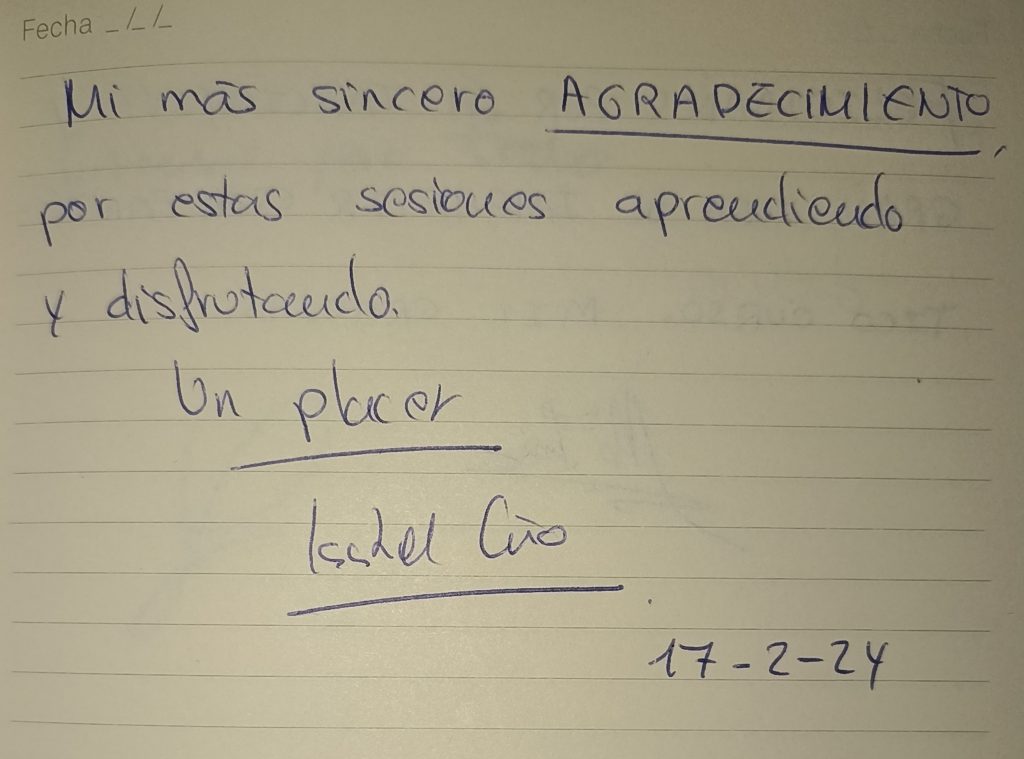 Fecha _/_/_
Mi más sincero AGRADECIMIENTO,
por estas sesiones aprendiendo
y disfrutando.
Un placer
Isabel
17-2-24